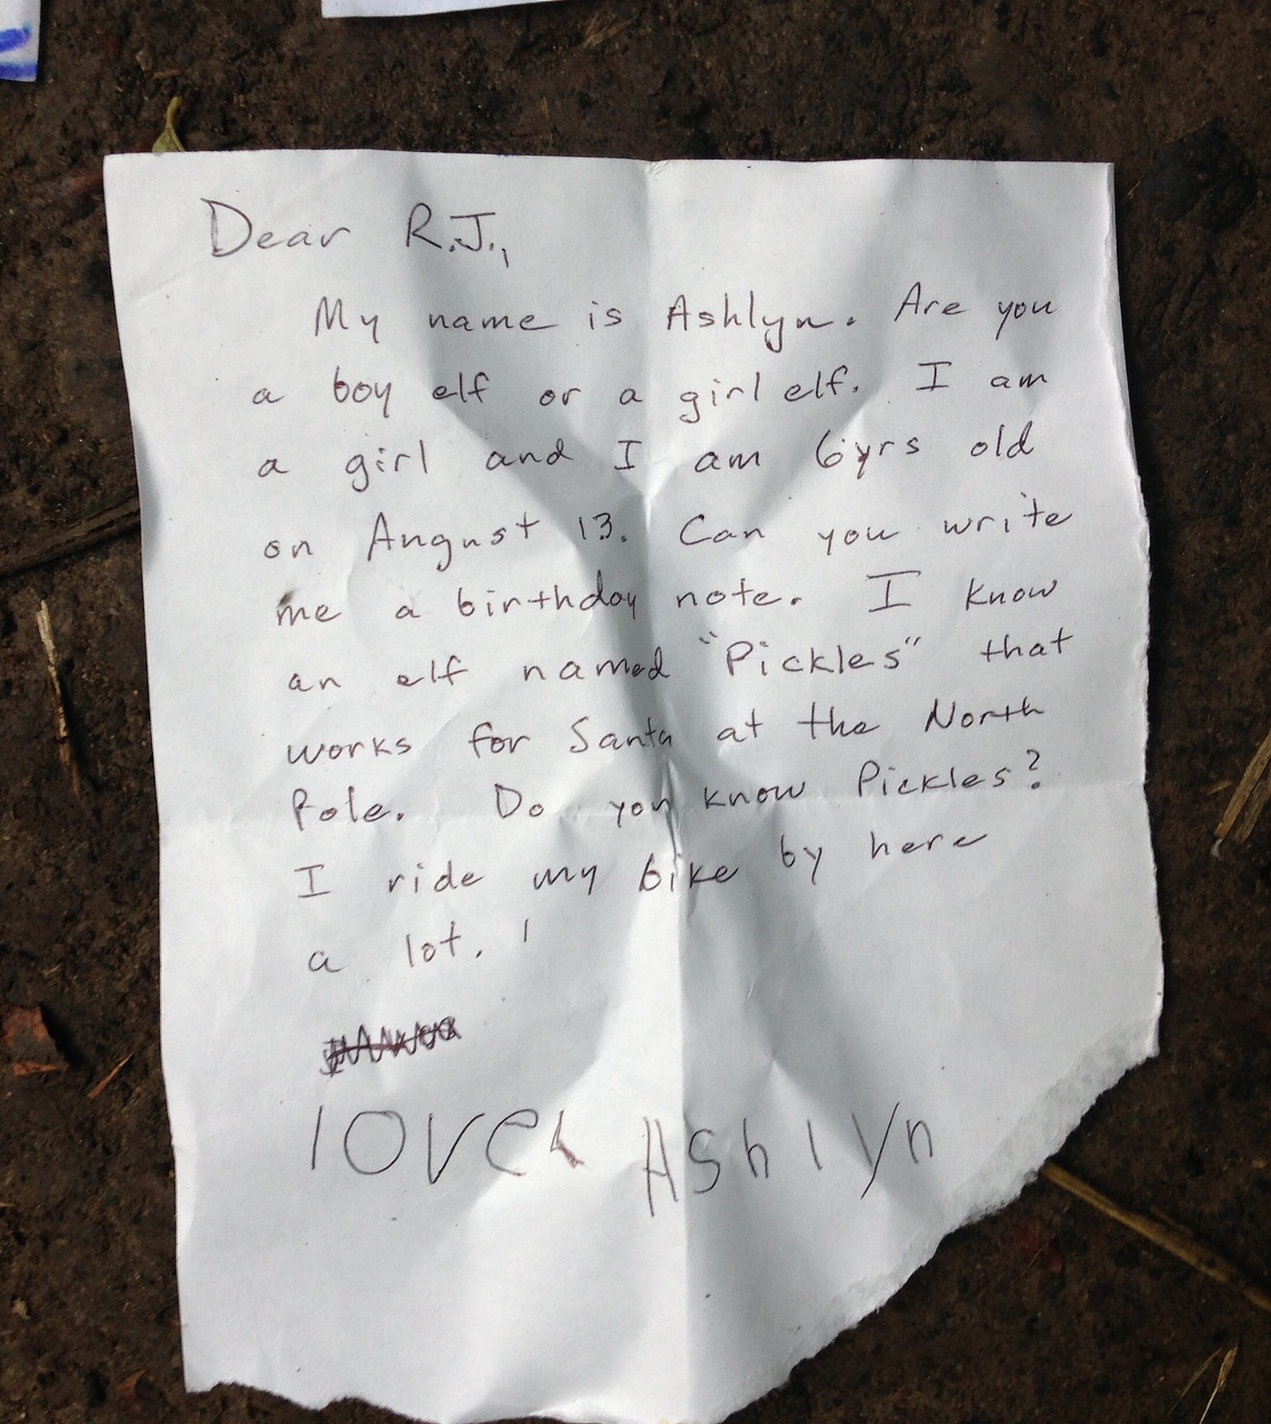 Dear R.J.,
My name is Ashlyn. Are you
a boy elf or a girl elf. I am
a girl and I am 6yrs old
on August 13. Can you write
me a birthday note. I know
an elf named "Pickles" that
works for Santa at the North
Pole. Do you know Pickles?
I ride my bike by here
a lot. !
love, Ashlyn